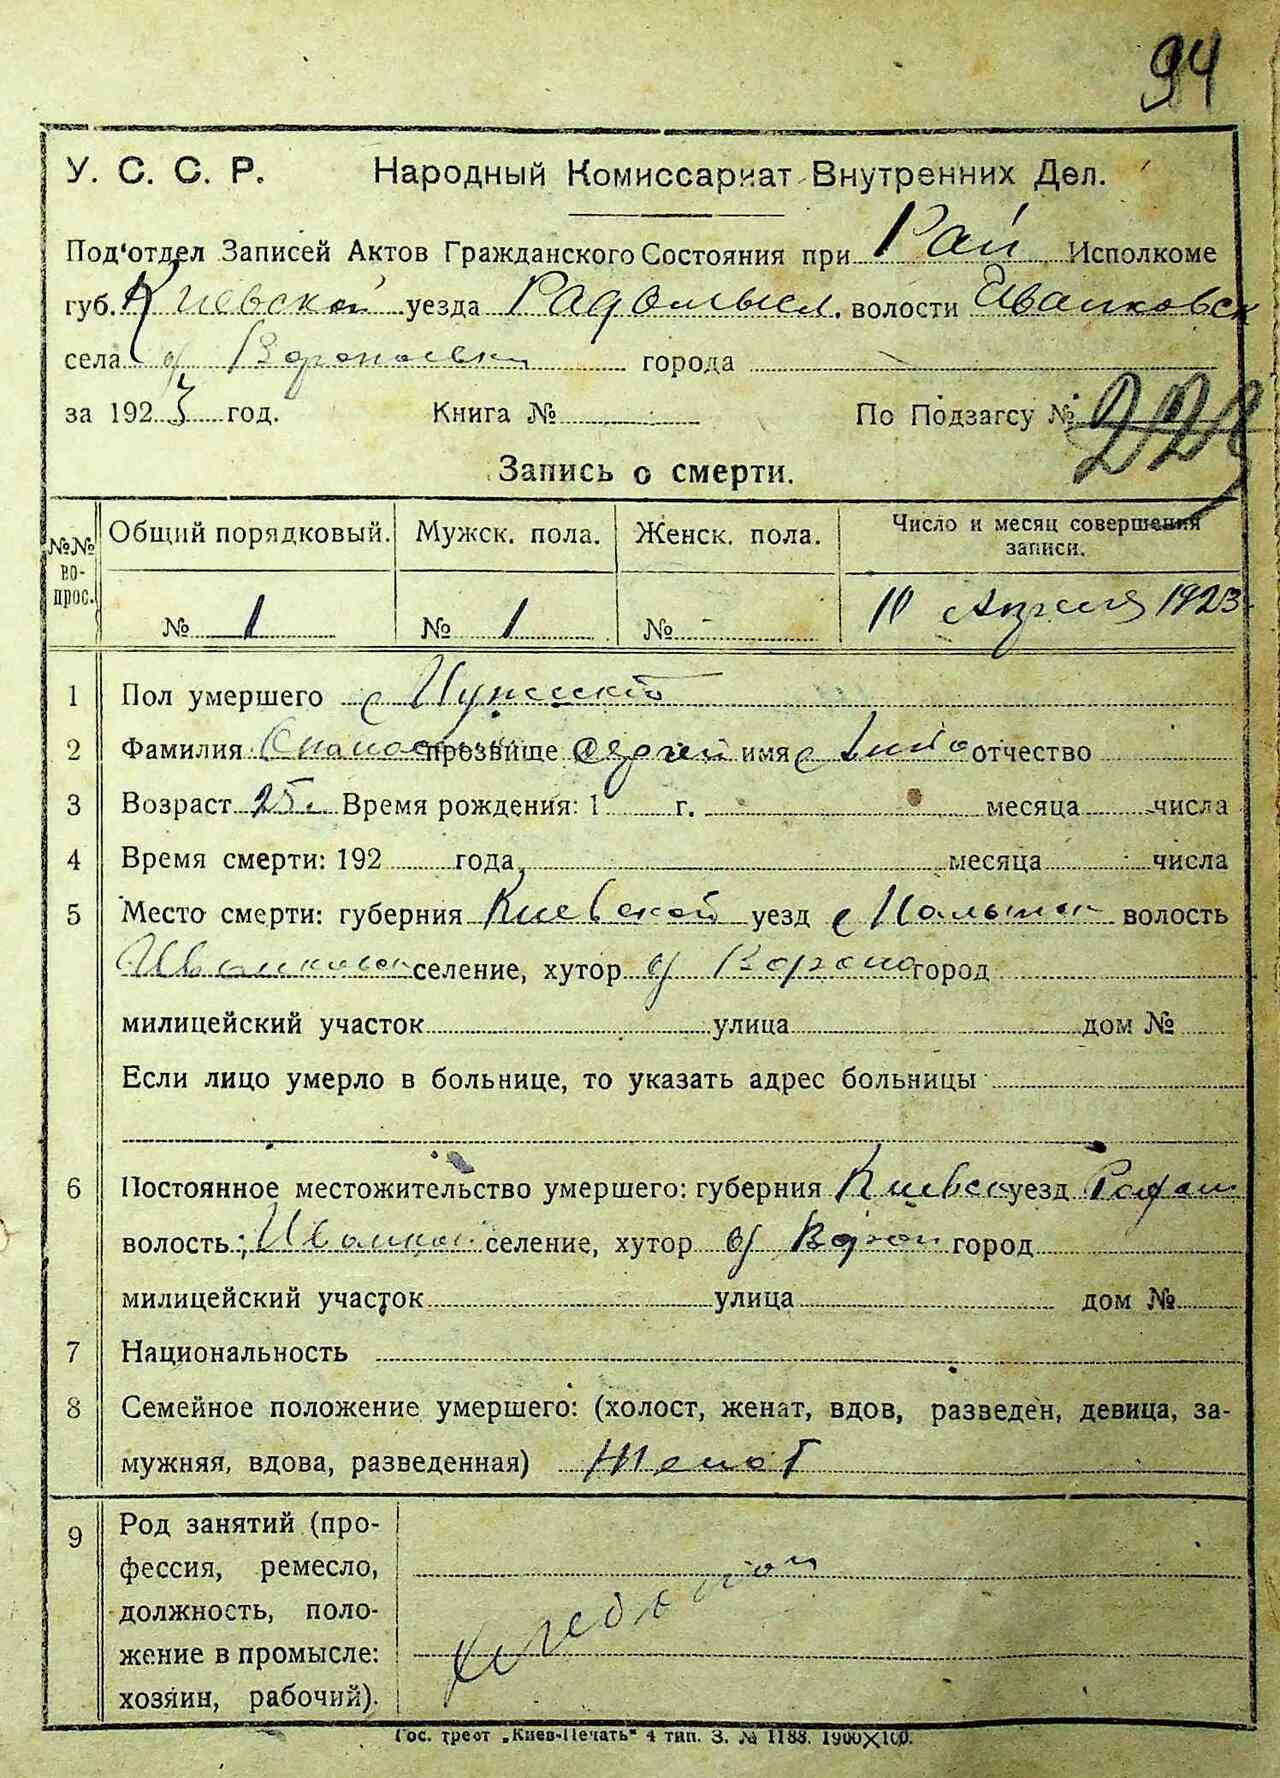 94
У. С. С. Р. Народный Комиссариат Внутренних Дел.
Под'отдел Записей Актов Гражданского Состояния при Рай Исполкоме
губ. Киевской уезда Радомысл. волости Иванковск
села с/ города
за 1923 год. Книга № По Подзагсу №
Запись о смерти.
№№ вопрос. Общий порядковый. Мужск. пола. Женск. пола. Число и месяц совершения записи.
№ 1 № 1 № - 10 Апреля 1923
1 Пол умершего Мужский
2 Фамилия прозвище Сергей имя отчество
3 Возраст 25 Время рождения: 1 г. месяца числа
4 Время смерти: 192 года, месяца числа
5 Место смерти: губерния Киевской уезд волость
селение, хутор с/ город
милицейский участок улица дом №
Если лицо умерло в больнице, то указать адрес больницы
6 Постоянное местожительство умершего: губерния Киевско уезд
волость: селение, хутор с/ город
милицейский участок улица дом №
7 Национальность
8 Семейное положение умершего: (холост, женат, вдов, разведен, девица, за-
мужняя, вдова, разведенная) Женат
9 Род занятий (про-
фессия, ремесло,
должность, поло-
жение в промысле:
хозяин, рабочий).
Гос. трест „Киев-Печать" 4 тип. З. № 1188. 1900X100.